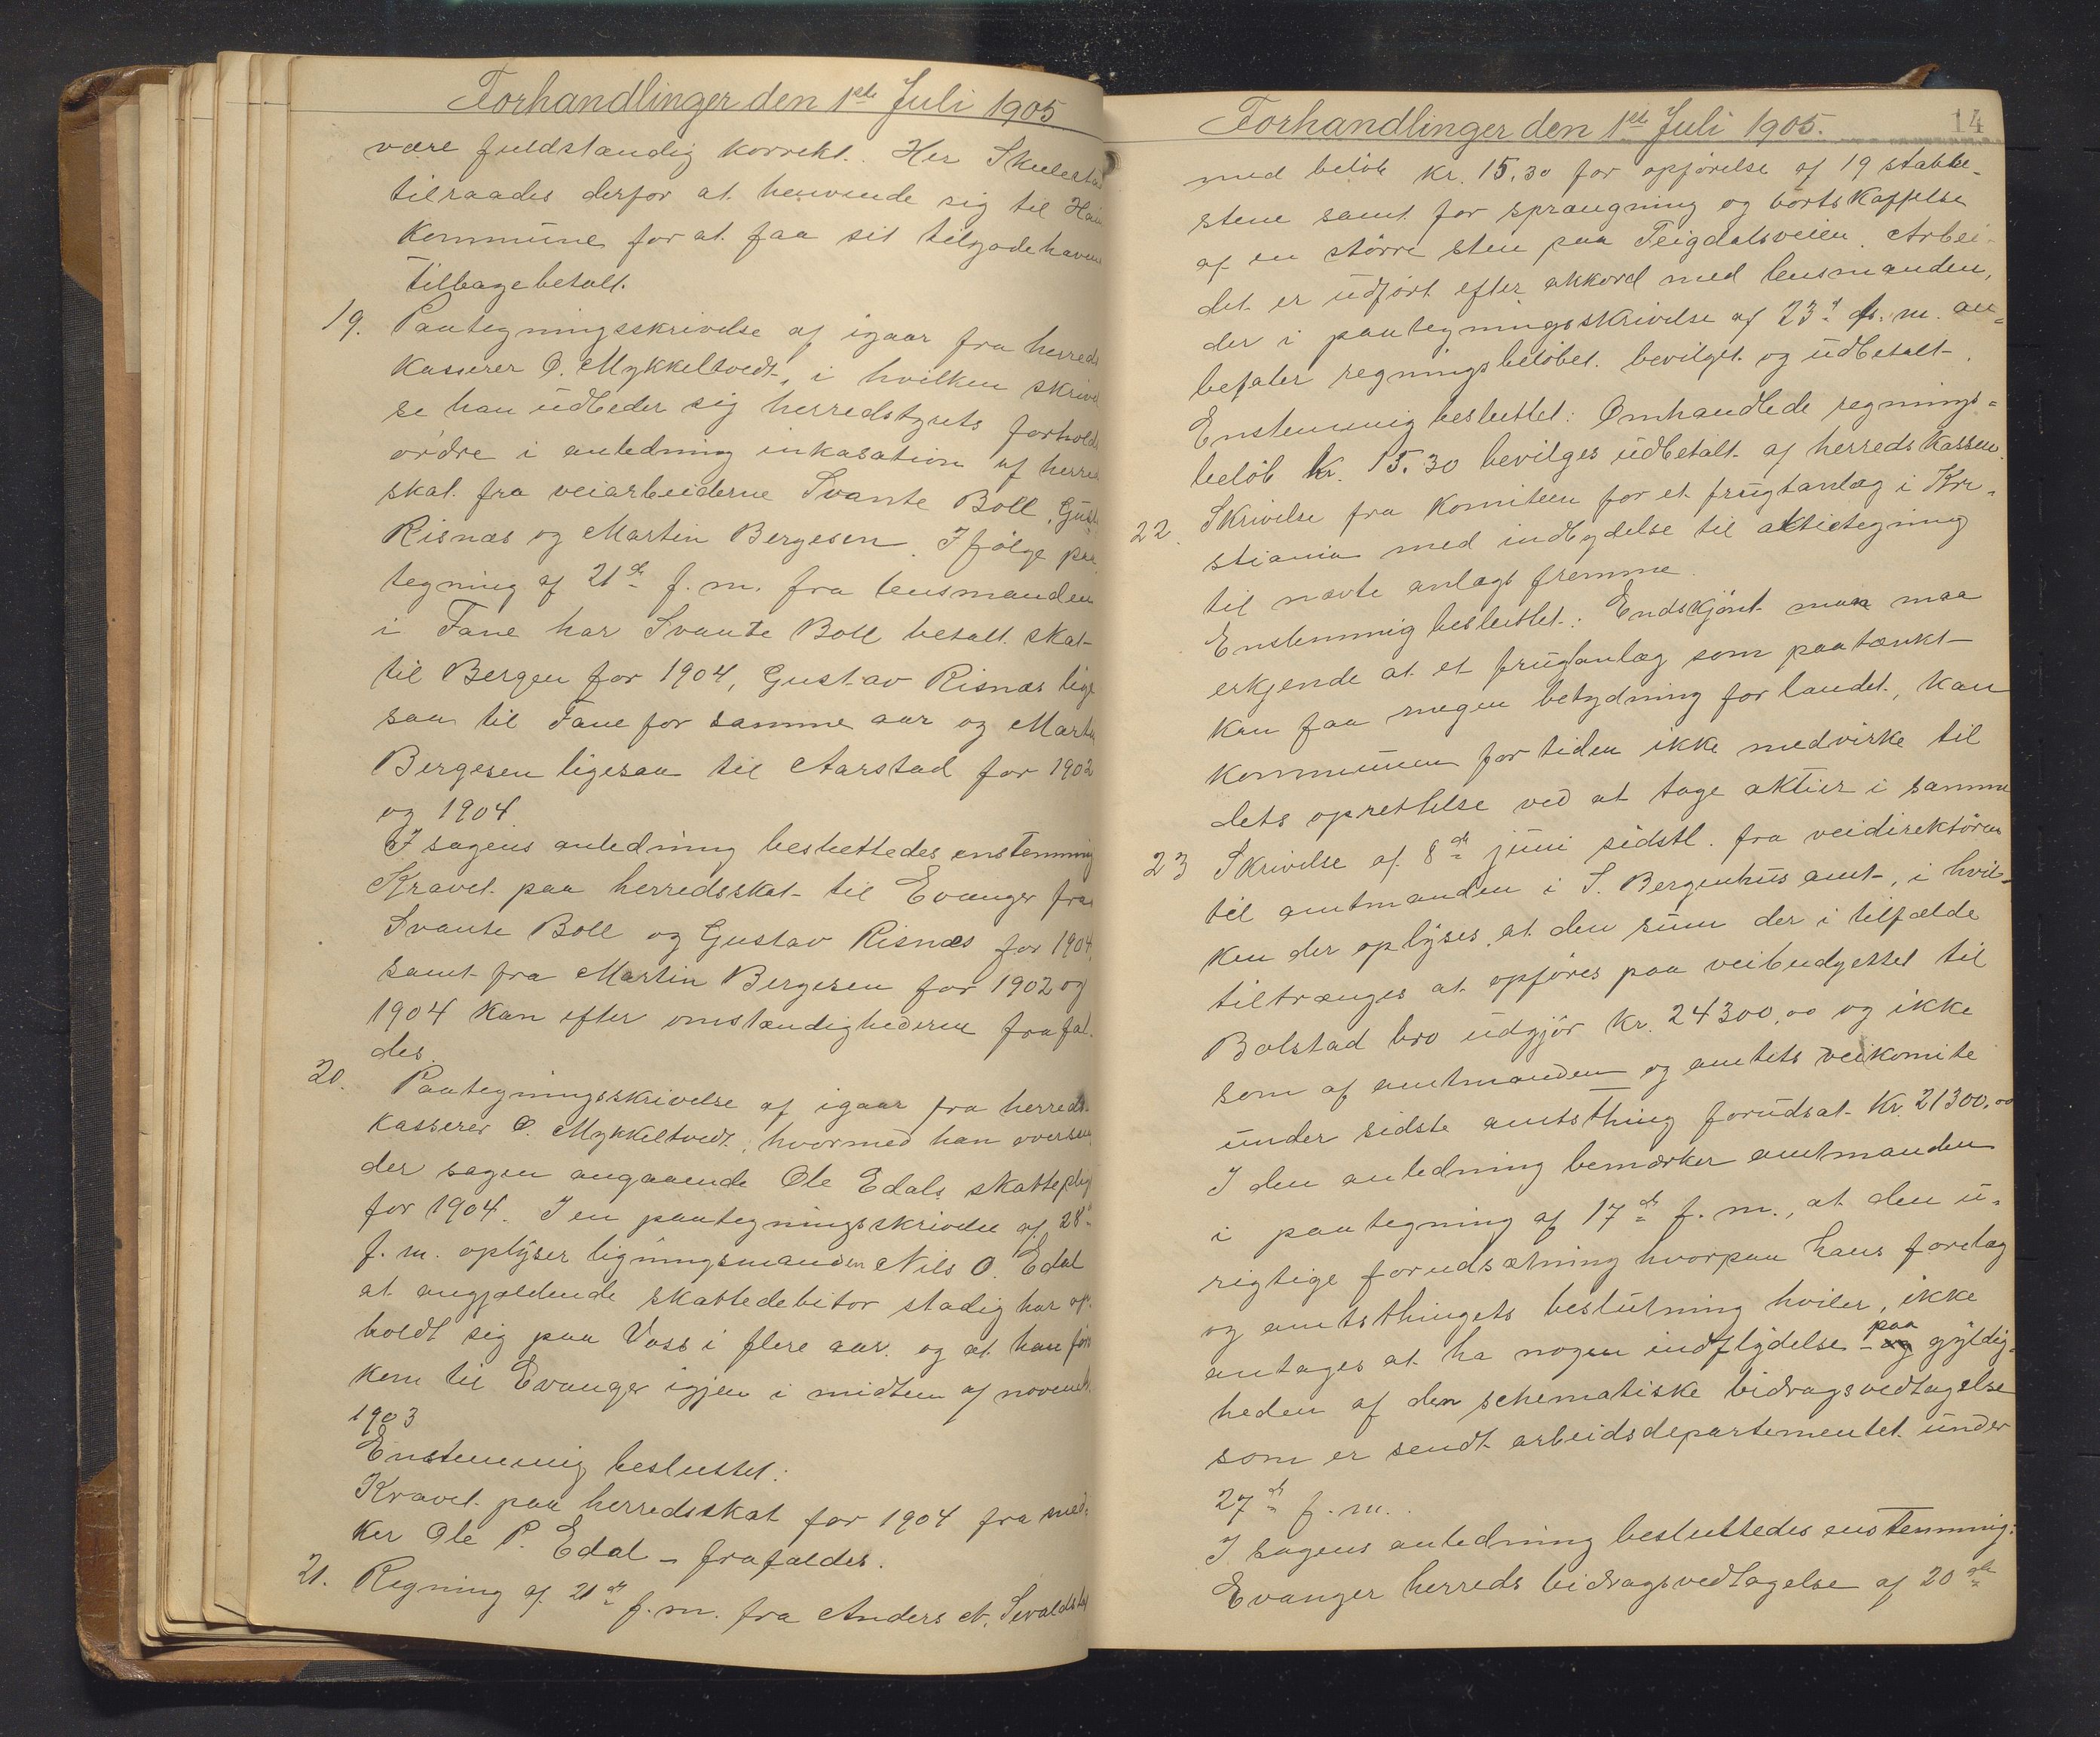 Forhandlinger den 1ste Juli 1905
være fuldstændig korrekt. Her Skulestad
tilraades derfor at henvende sig til
kommune for at faa sit tilgodehavende
tilbagebetalt.
19. Paategningsskrivelse af igaar fra herreds
kasserer O. Mykkeltvedt, i hvilken skrivel
se han udbeder sig herredstyrets forholds
ordre i anledning inkasation af herreds
skat fra veiarbeiderne Svante Boll, Gustav
Risnæs og Martin Bergesen. Ifølge paa
tegning af 21de f. m. fra lensmanden
i Fane har Svante Boll betalt skat
til Bergen for 1904, Gustav Risnæs lige
saa til Fane for samme aar og Martin
Bergesen ligesaa til Aarstad for 1902
og 1904.
I sagens anledning besluttedes enstemmig
Kravet paa herredsskat til Evanger fra
Svante Boll og Gustav Risnæs for 1904,
samt fra Martin Bergesen for 1902 og
1904 kan efter omstændighederne frafal
des.
20. Paategningsskrivelse af igaar fra herreds-
kasserer O. Mykkeltvedt, hvormed han oversen
der sagen angaaende Ole Edals skatteplig
for 1904. I en paategningsskrivelse af 28de
f. m. oplyser ligningsmanden Nils O. Edal
at angjældende skattedebitor stadig har op-
holdt sig paa Voss i flere aar, og at han først
kom til Evanger igjen i midten af novemb.
1903
Enstemmig besluttet:
Kravet paa herredsskat for 1904 fra sned-
ker Ole P. Edal - frafaldes.
21. Regning af 21de f. m. fra Anders A.
Forhandlinger den 1ste Juli 1905. 14
med beløb kr. 15.30 for opførelse af 19 stabbe-
stene samt for sprængning og bortskaffelse
af en større sten paa Teigdalsveien. Arbei-
det er udført efter akkord med lensmanden,
der i paategningsskrivelse af 23de f. m. an-
befaler regningsbeløbet bevilget og udbetalt.
Enstemmig besluttet: Omhandlede regnings-
beløb kr. 15.30 bevilges udbetalt af herredskassen.
22. Skrivelse fra komiteen for et frugtanlæg i Kri-
stiania med indbydelse til aktietegning
til nævte anlægs fremme.
Enstemmig besluttet: Endskjønt man maa
erkjende at et frugtanlæg som paatænkt
kan faa megen betydning for landet, kan
kommunen for tiden ikke medvirke til
dets oprettelse ved at tage aktier i samme
23 Skrivelse af 8de juni sidstl. fra veidirektøren
til amtmanden i S. Bergenhus amt, i hvil-
ken der oplyses at den sum der i tilfælde
tiltrænges at opføres paa veibudgettet til
Bolstad bro udgjør kr. 24300,00 og ikke
som af amtmanden og amtets veikomite
under sidste amtsthing forudsat kr. 21300,00
I den anledning bemærker amtmanden
i paategning af 17de f. m., at den u-
rigtige forudsætning hvorpaa hans forelæg
og amtsthingets beslutning hviler, ikke
antages at ha nogen indflydelse paa gyldig-
heden af den schematiske bidragsvedtagelse
som er sendt arbeidsdepartementet under
27de f. m.
I sagens anledning besluttedes enstemmig:
Evanger herreds bidragsvedtagelse af 20de